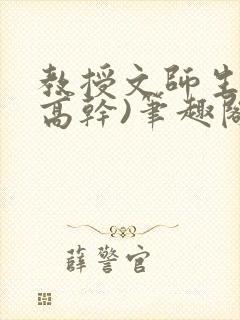 教授文師生
高幹)筆趣閣
薛警官